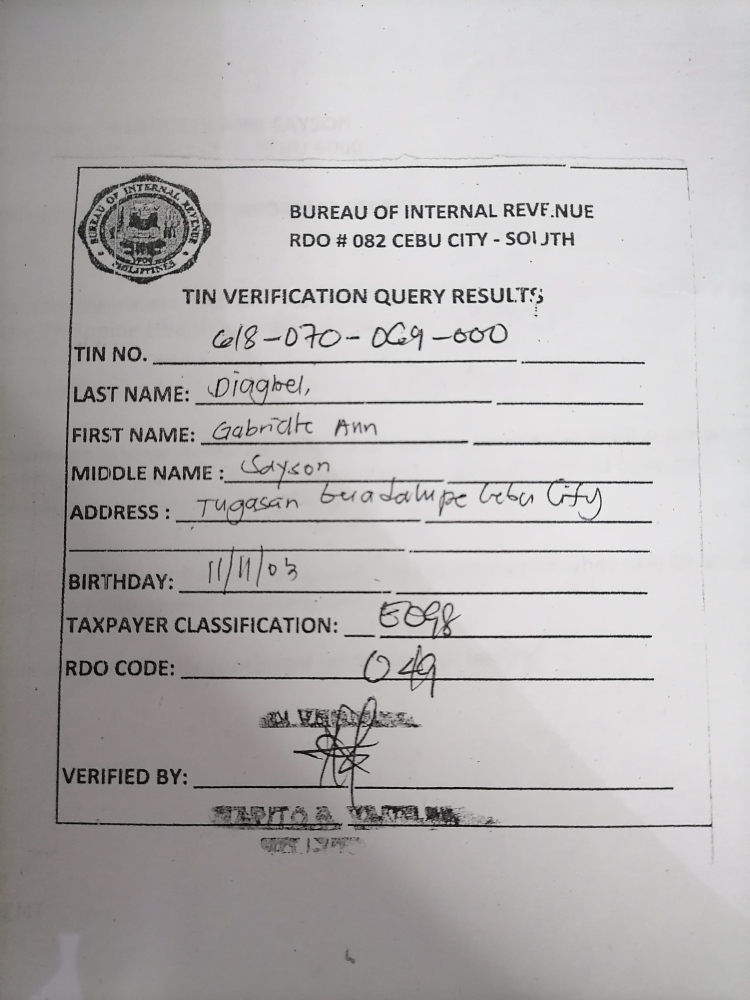 BUREAU OF INTERNAL REVENUE
PHILIPPINES
BUREAU OF INTERNAL REVENUE
RDO # 082 CEBU CITY - SOUTH
TIN VERIFICATION QUERY RESULTS
TIN NO. 618-070-069-000
LAST NAME:
FIRST NAME: Gabrielle Ann
MIDDLE NAME: Sayson
ADDRESS: Tugasan Guadalupe Cebu City
BIRTHDAY: 11/11/03
TAXPAYER CLASSIFICATION: EO98
RDO CODE: 049
VERIFIED BY: